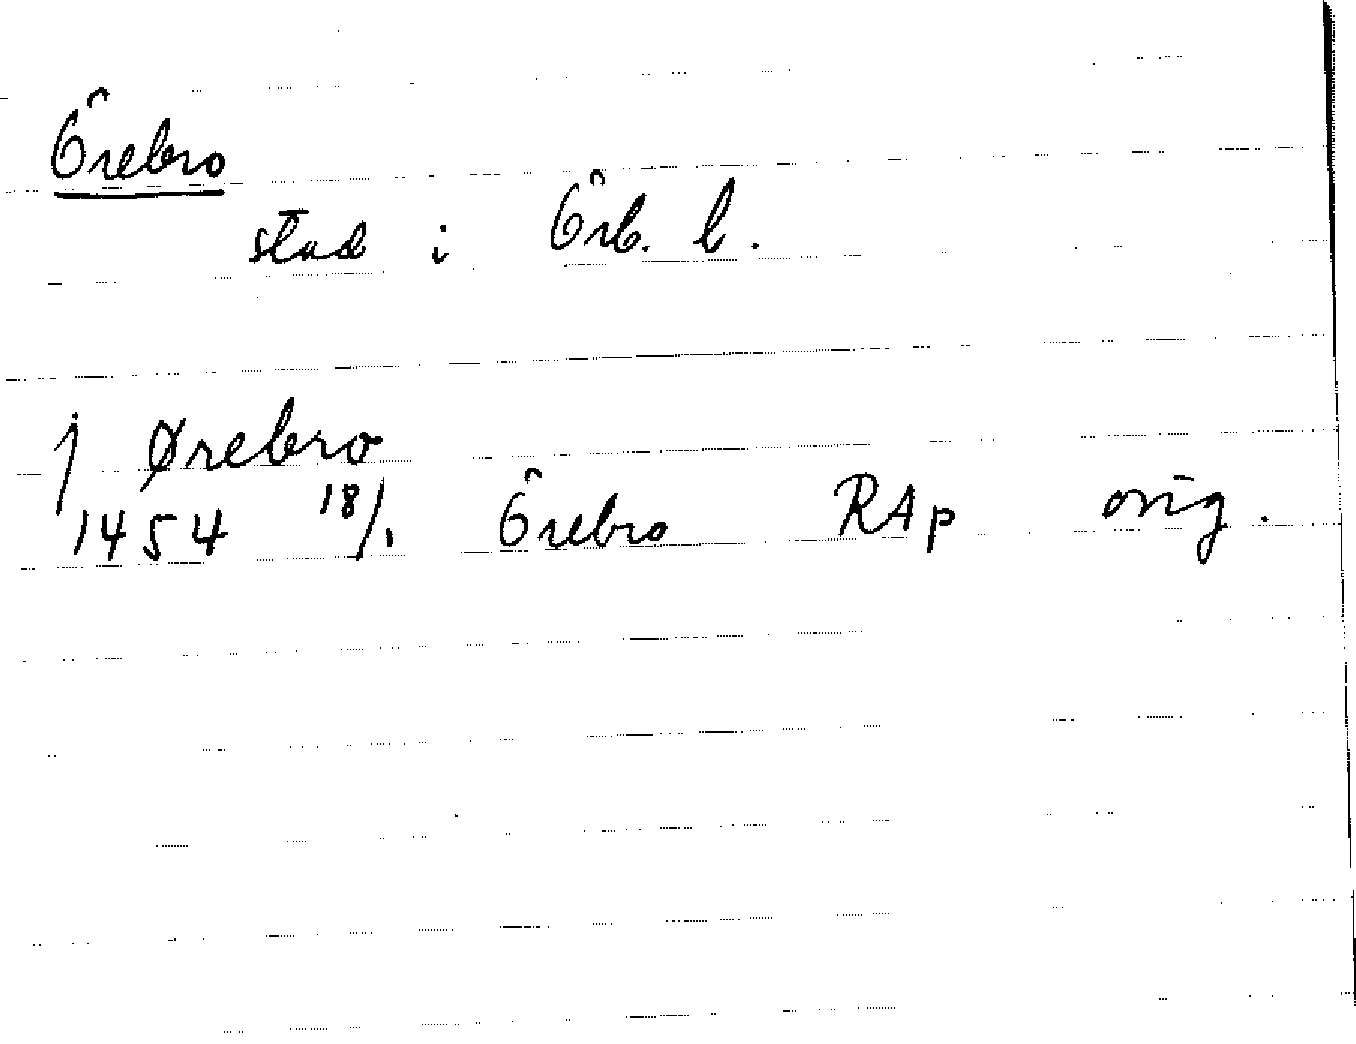 Örebro
stad i Örb. l.
j Ørebro
1454 18/1 Örebro RAp orig.